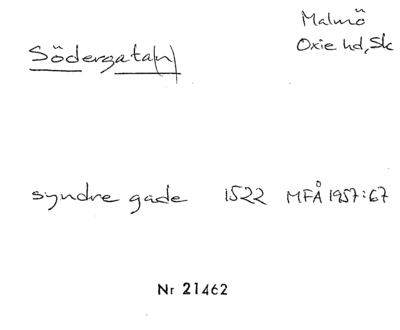 Malmö
Södergata(n)
Oxie hd, Sk
syndre gade 1522 MFÅ 1957:67
Nr 21462